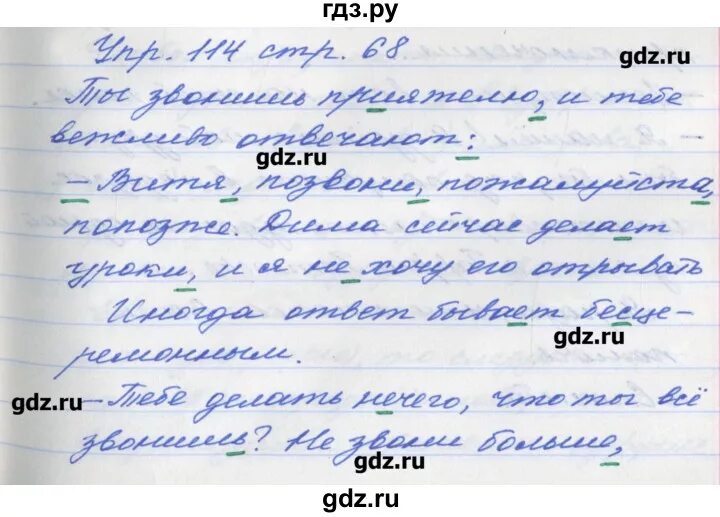 гдз.ру
Упр. 114 стр. 68
gdz.ru
Ты звонишь приятелю, и тебе
вежливо отвечают:
gdz.ru
– Витя, позвони, пожалуйста,
попозже. Дима сейчас делает
уроки, и я не хочу его отрывать
Иногда ответ бывает бесце-
gdz.ru
ремонным.
gdz.ru
– Тебе делать нечего, что ты всё
звонишь? Не звони больше,
gdz.ru
gdz.ru